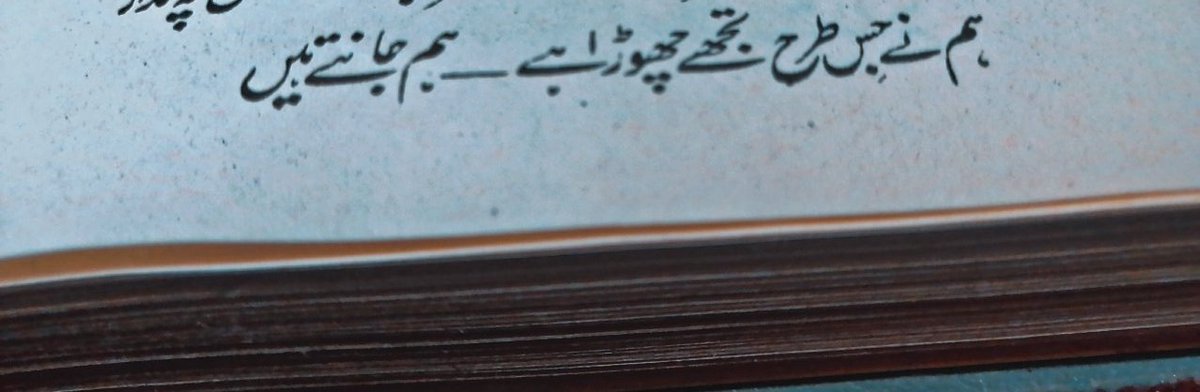 ہم نے جس طرح تجھے چھوڑا ہے — ہم جانتے ہیں